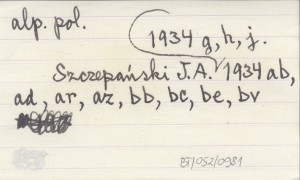 alp. pol.
1934 g, h, j.
Szczepański J.A. 1934 ab,
ad, ar, az, bb, bc, be, bv
BJ/052/0981